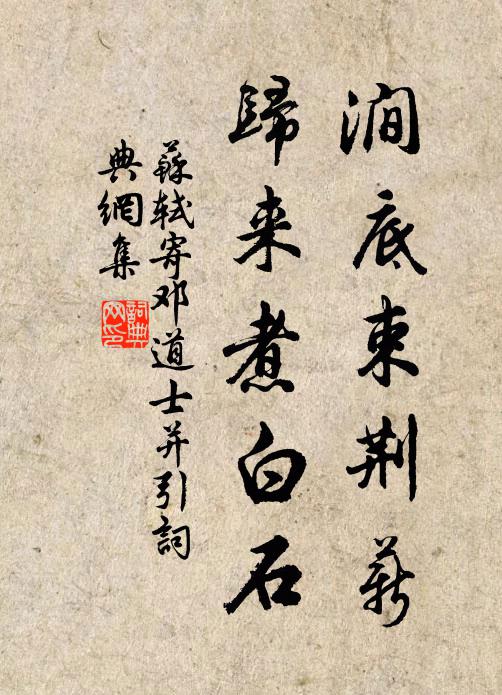 澗底束荆薪
歸来煮白石
蘇軾寄邓道士并引詞
典網集
詞典
网印